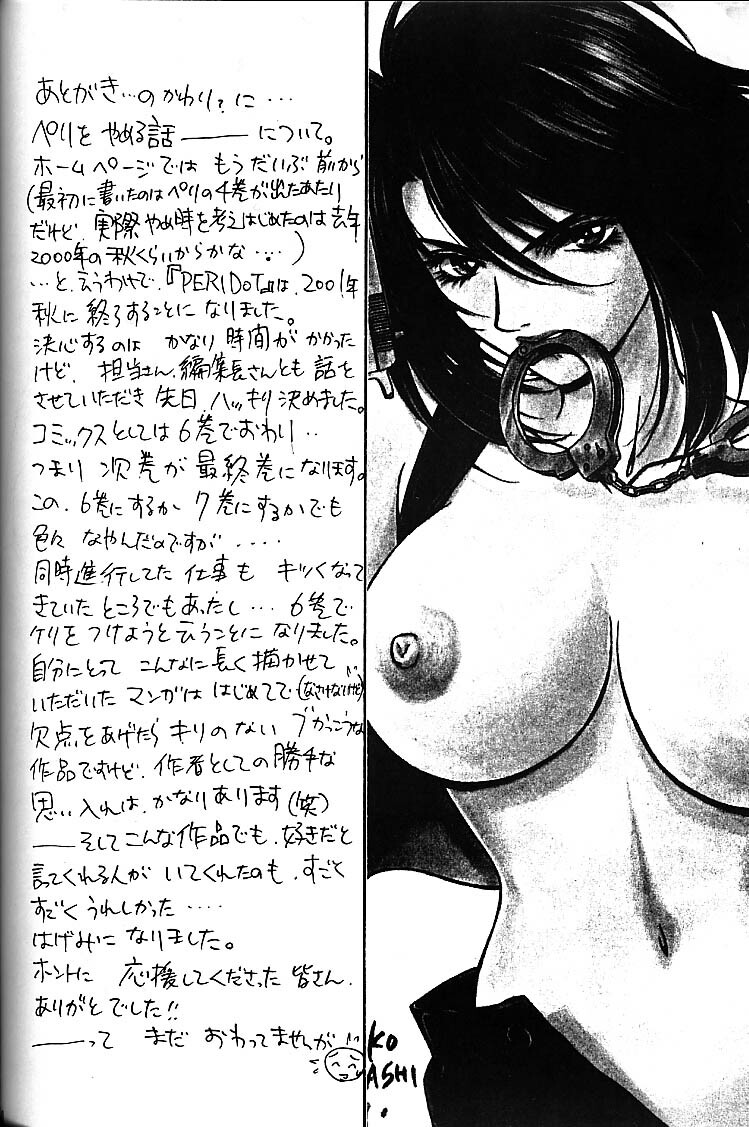 あとがき…のかわり?に…
ペリを やめる話 ―― について。
ホームページでは もうだいぶ前から
(最初に書いたのはペリの4巻が出たあたり
だけど、実際やめ時を考えはじめたのは去年
2000年の秋くらいからかな…)
…と、言うわけで、『PERIDoT』は、2001年
秋に終了することに なりました。
決心するのは かなり時間が かかった
けど、担当さん、編集長さんとも 話を
させていただき 先日 ハッキリ決めました。
コミックスとしては6巻でおわり‥
つまり 次巻が 最終巻になります。
この、6巻にするか 7巻にするかでも
色々 なやんだのですが ‥‥
同時進行してた 仕事も キツくなって
きていた ところでもあったし… 6巻で
ケリを つけようと言うことに なりました。
自分にとって こんなに長く描かせて
いただいた マンガは はじめてで(なさけないけど)
欠点をあげたら キリのない ブかっこうな
作品ですけど、作者としての勝手な
思い入れは、かなりあります(笑)
――そしてこんな作品でも、好きだと
言ってくれる人が いてくれたのも、すごく
すごく うれしかった ‥‥
はげみに なりました。
ホントに 応援してくださった 皆さん、
ありがと でした!!
――って まだ おわってませんが
KO
ASHI